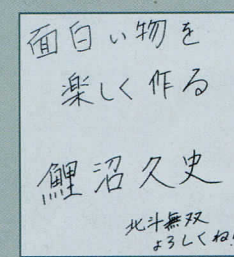 面白い物を
楽しく作る
鯉沼久史
北斗無双
よろしくね!